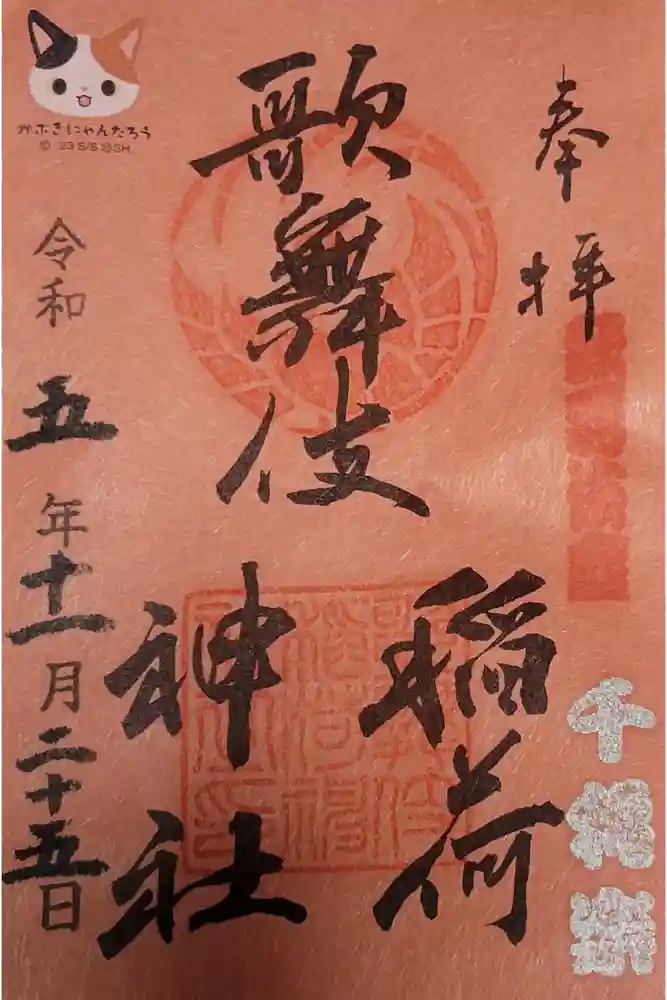 奉拝
千穐楽
歌舞伎
稲荷
神社
令和五年十一月二十五日
かぶきにゃんたろう
© '23 S/S.ⓈSH